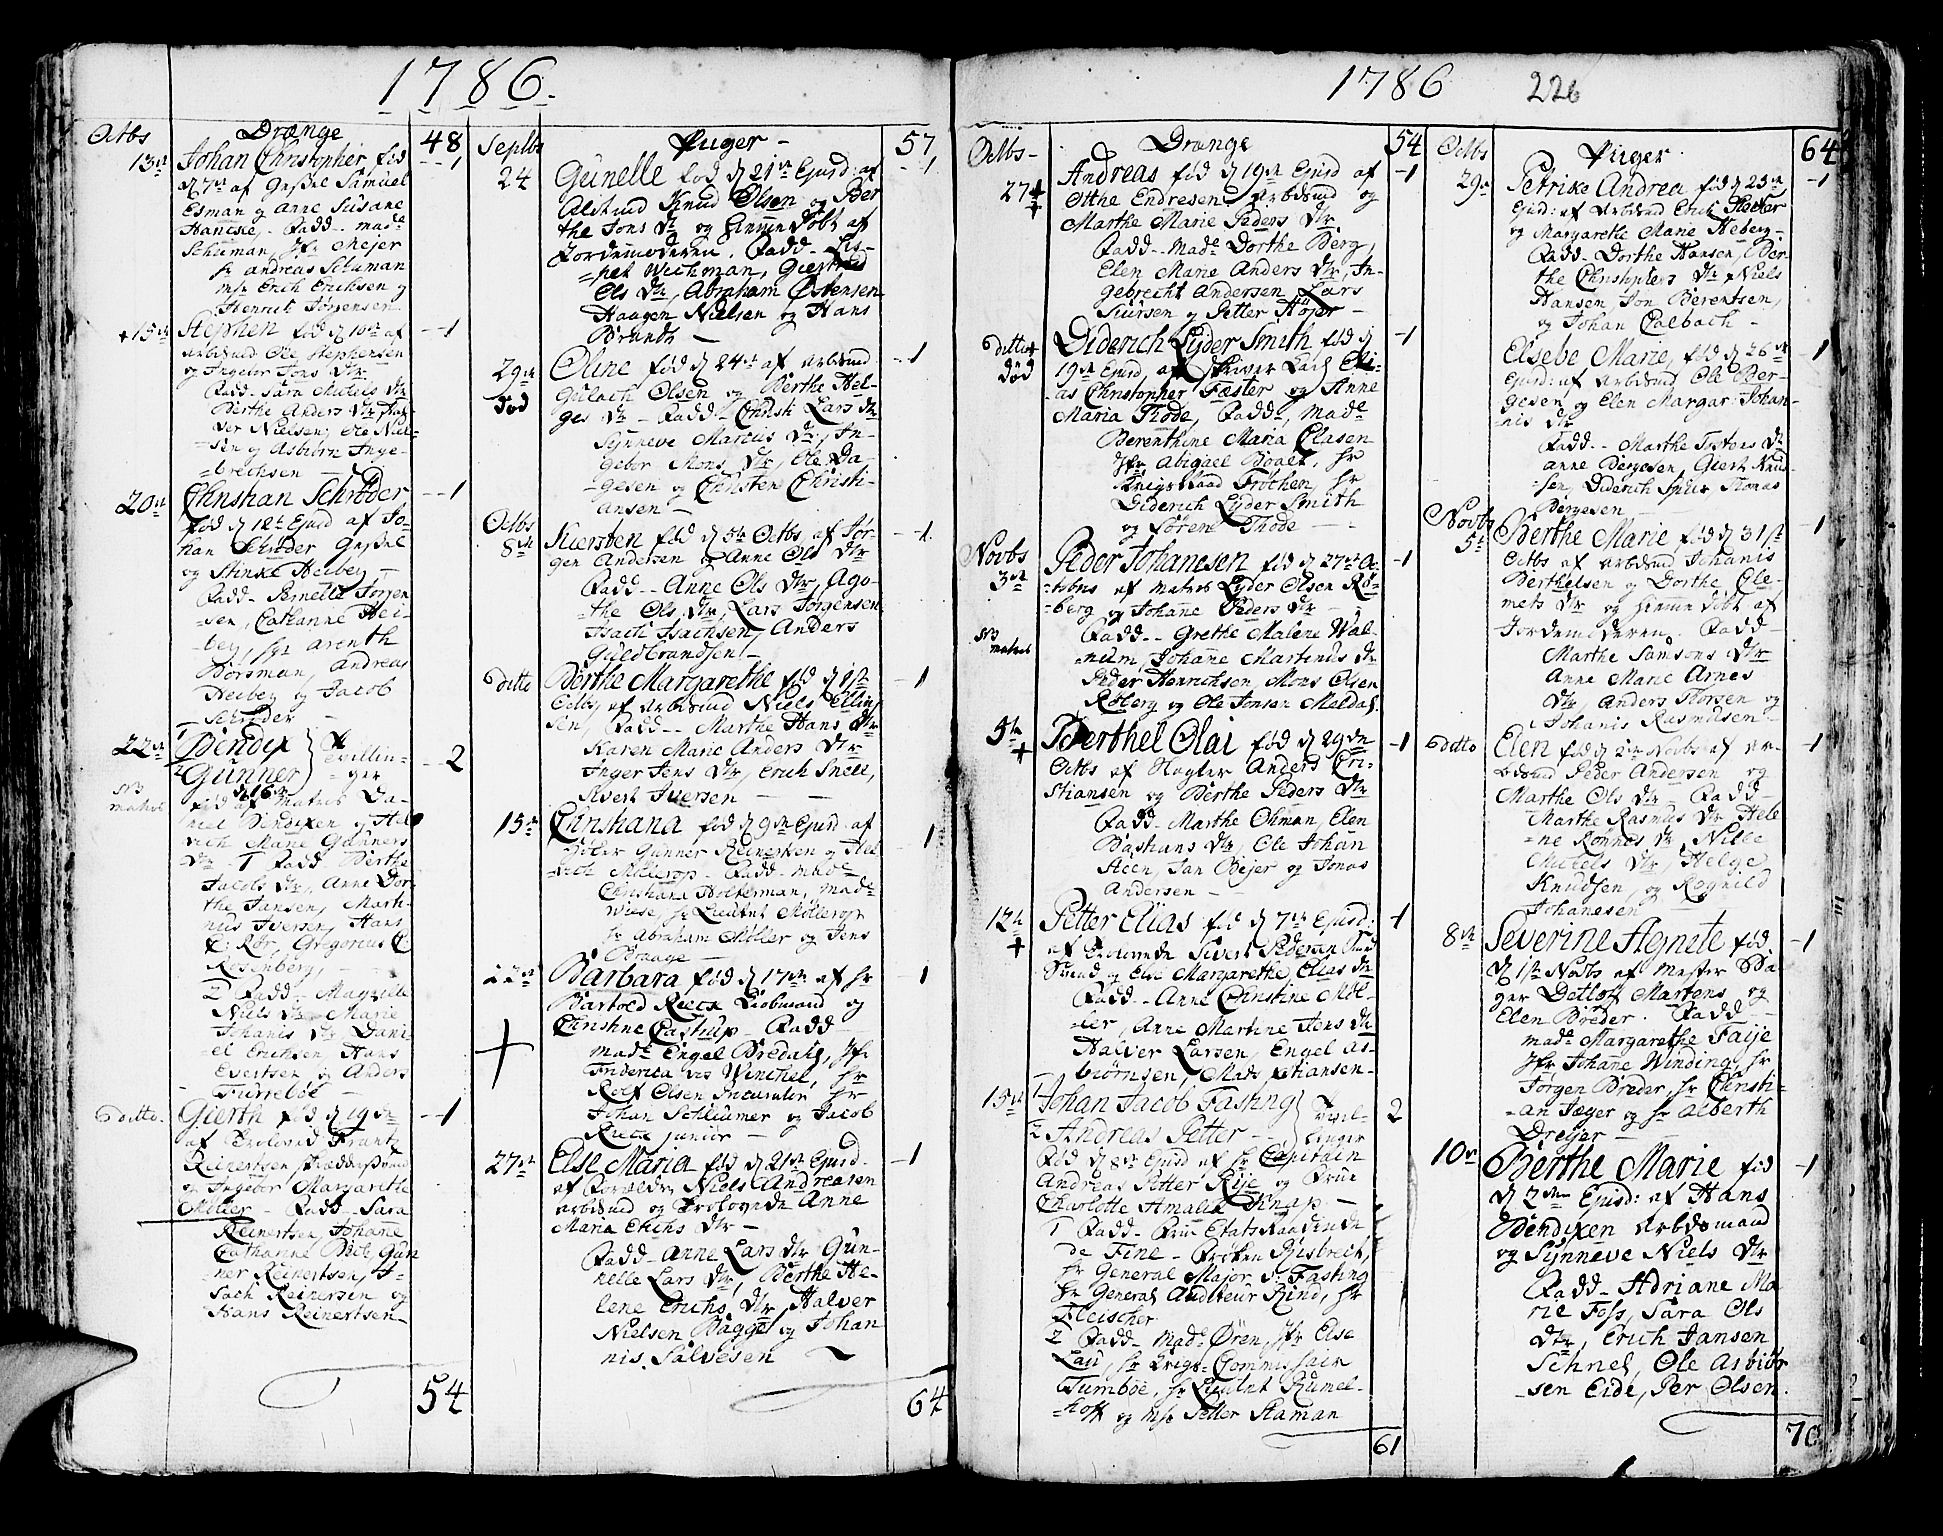 1786.
Octbs
Drænge
48
13de
Johan Christopher fød
1
d 7de af Giesel Samuel
Esman og Anne Susane
Hancke. Fadd. made
Schuman, Jfr Mejer
hr Andreas Schuman
Erich Erichsen og
Henrich Jørgensen
+ 15de
Stephen fød d 10de af
1
arbdmd Ole Stephensen
og Ingebor Jons Dtr
Fadd. Sara Michels Dtr
Berthe Anders Dtr Hal-
ver Nielsen, Ole Niel-
sen og Asbiørn Inge-
brechsen
20de
Christian Schrøder
1
fød d 12t Ejusd af Jo-
han Schrøder
og Stinke Heiberg
Fadd. Pernelle Jørgen
sen, Cathanne Hei-
berg, hr Arenth
Dorsman, Andreas
Heiberg og Jacob
Schrøder
22de
1 Bendix
2 Gunner
Tvillin-
ger
2
NB
matros
d 16de
fød af Matros Da-
niel Bendixen og Hel
vich Marie Gunners
Dtr 1 Fadd Berthe
Jacobs Dtr, Anne Dor-
the Jansen, Mart-
nus Iversen, Hans
C: Rør, Gregorius C
Rosenberg,
2 Fadd. Magrette
Niels Dtr Marie
Johanis Dtr Dani-
el Erichsen, Hans
Evertsen og Anders
Turreløe
ditto.
Gierth fød d 19de
1
af Frantz
Reinertsen
og Ingebor Margarethe
Møller - Fadd - Sara
Reinertsen, Johanne
Cathanne Gun
ner Reinertsen, I-
sach Reinersen og
Hans Reinertsen
54
Septbs
Piiger
57
24
Gunelle fød d 21de Ejusd: af
1
Knud Olsen og Ber
the Jons Dtr og hiemmedøbt af
Jordemoderen. Fadd. Lis-
bet Wichman, Giertrud
Ols Dtr, Abraham Østensen
Haagen Nielsen og Hans
Brandt
29de
Død
Oline fød d 24de af arbdmd
1
Gulach Olsen og Berthe Hel-
ges Dtr - Fadd - Christi Lars Dtr
Synneve Marcus Dtr, In-
gebor Mons Dtr, Ole Da-
gesen og Christen Christi-
ansen
Octbs
8de
Kiersten fød d 5te Octbs af Jør-
1
gen Andersen og Anne Ols Dtr
Fadd. Anne Ols Dtr, Ago-
the Ols Dtr, Lars Jørgensen
Isach Isachsen, Anders
Guldbrandsen
ditto
Berthe Margarethe fød d 1ste
1
Octbs af Arbdmd Niels Ellin
sen, Fadd. Marthe Hans Dtr
Karen Marie Anders Dtr
Inger Jens Dtr, Erich Snell,
Sivert Iversen
15de
Christiana fød d 9de Ejusd. af
1
Gunner Reinertsen og Hel
vich Møllerop. Fadd. made
Christiana Holterman, made
Wiese, hr Lieutnt Møllerop
hr Abraham Møller og Jens
Braage
22de
+
Barbara fød d 17de af hr
1
Bartold Riecx Kiøbmand og
Christine Castrup - Fadd
made Engel Bredahl, Jfr
Friderica Winchel, hr
Rolf Olsen Procurator hr
Johan Schleumer og Jacob
Riecx junior
27de
Else Maria fød d 21de Ejusd.
1
af Forældr Niels Andreasen
arbdmd og Trolovede Anne
Maria Erichs Dtr
Fadd. Anne Lars Dtr Gun-
nelle Lars Dtr, Berthe He-
lene Erichs Dtr, Halver
Nielsen Bagge og Johan
nis. Salvesen
64
1786
226
Octbs
Drænge
54
27de
+
Andreas fød d 19de Ejusd af
1
Otthe Endresen, Arbdmd og
Marthe Marie Peders Dtr
Fadd. Made Dorthe Berg,
Elen Marie Anders Dtr, In-
gebrecht Andersen Lars
Siursen og Petter Høyer
ditto
Død
Diderich Lyder Smith fød d
1
19de Ejusd af Skriver Eli-
as Christopher Fæster og Anne
Maria Thode, Fadd. made
Berenthine Maria Clasen
Jfr Abigael Boalt, hr
Krigsraad Frøchen, hr
Diderich Lyder Smith
og Søren Thode
Novbs
3de
NB
matros
Peder Johanesen fød d 27de Oc-
1
tobris af matros Lyder Olsen Rø-
berg og Johanne Peders Dtr
Fadd. Grethe Malene Wal-
num, Johanne Martinus Dtr
Peder Henrichsen, Mons Olsen
Røberg og Ole Jonsen Meldal.
5te
+
Berthel Olai fød d 29de
1
Octbs af Anders Cri-
stiansen og Berthe Peders Dtr
Fadd. Marthe Ohman, Elen
Bastians Dtr, Ole Johan
Steen, Jan Bejer og Jonas
Andersen
12te
+
Petter Elias fød d 7de Ejusd:
1
af Trolovede Sivert Pedersen
og Else Margarethe Elias Dtr
Fadd. Anne Christine Møl-
ler, Anne Martine Jens Dtr
Halver Larsen, Engel As-
biørnsen, Mads
15de
1 Johan Jacob Fasting
2 Andreas Petter
Tvil-
linger
2
Fød d 8de Ejusd af hr Capitain
Andreas Petter Rije og Frue
Charlotte Amalia Knap
1 Fadd. Frue Etatsraadinde
de Fine - Frøken Gjsbrecht,
hr General Major v: Fasting
hr General Auditeur Rind, hr
Fleischer
2 Fadd. made Øren, Jfr Else
Lau, hr Krigs Commissair
Tumbøe, hr Lieutnt Rumel-
hoff og msr Petter Staman
61
Octbs
Piiger
64
29de
Petrike Andrea fød d 23de
1
Ejusd: af Arbdmd Erich Flectar
og Margarethe Marie Heberg
Fadd. Dorthe Hansen, Ber-
the Christophers Dtr Niels
Hansen, Jon Berentsen,
og Johan Calbach
Elsebe Marie, fød d 26de
1
Ejusd: af arbdmd Ole Ber-
gesen og Elen Margar: Johan-
nis Dtr
Fadd. Marthe Dtr
Anne Bergesen, Giert Knu-
sen, Diderich Spur Thomas
Bergesen
Novbs
5te
Berthe Marie, fød d 31ste
1
Octbs af arbdmd Johanis
Berthelsen og Dorthe Cle-
mets Dtr og hiemmedøbt af
Jordemoderen. Fadd
Marthe Samsons Dtr
Anne Marie Arnes
Dtr, Anders Thorsen og
Johanis Rasmusen
ditto
Elen fød d 2de Novbs af ar-
1
bdmd Peder Andersen og
Marthe Ols Dtr. Fadd.
Marthe Rasmus Dtr Hele
ne Rønnes Dtr, Nille
Michels Dtr, Helge
Knudsen, og Regnild
Johanesen
8de
Severine Agnete fød
1
d 1ste Novbs af Mester Ba-
ger Detlof Martens og
Elen Breder. Fadd
made Margarethe Faije
Jfr Johanne Winding, hr
Jørgen Breder, hr Christi-
an Jæger og hr Alberth
Dreyer
10de
Berthe Marie fød
1
d 2den Ejusd: af Hans
Bendixen Arbdsmand
og Synneve Niels Dtr
Fadd. Adriane Ma
rie Foss, Sara Ols
Dtr, Erich Jansen
Schnel, Ole Asbiør
sen Eide, Per Olsen.
70